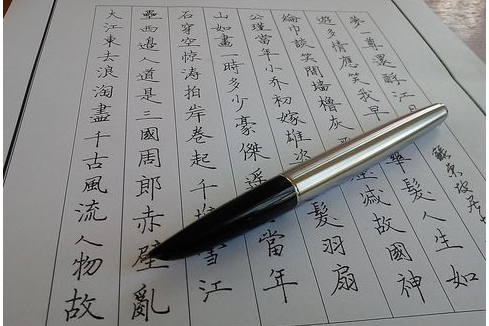 大江東去浪淘盡千古風流人物故
壘西邊人道是三國周郎赤壁亂
石穿空惊涛拍岸卷起千雪江
山如畫一時多少豪傑遥當年
公瑾當年小乔初嫁雄髮羽扇
綸巾談笑間墙櫓灰減故國神
遊多情應笑我早華髮人生如
夢一尊還酹江